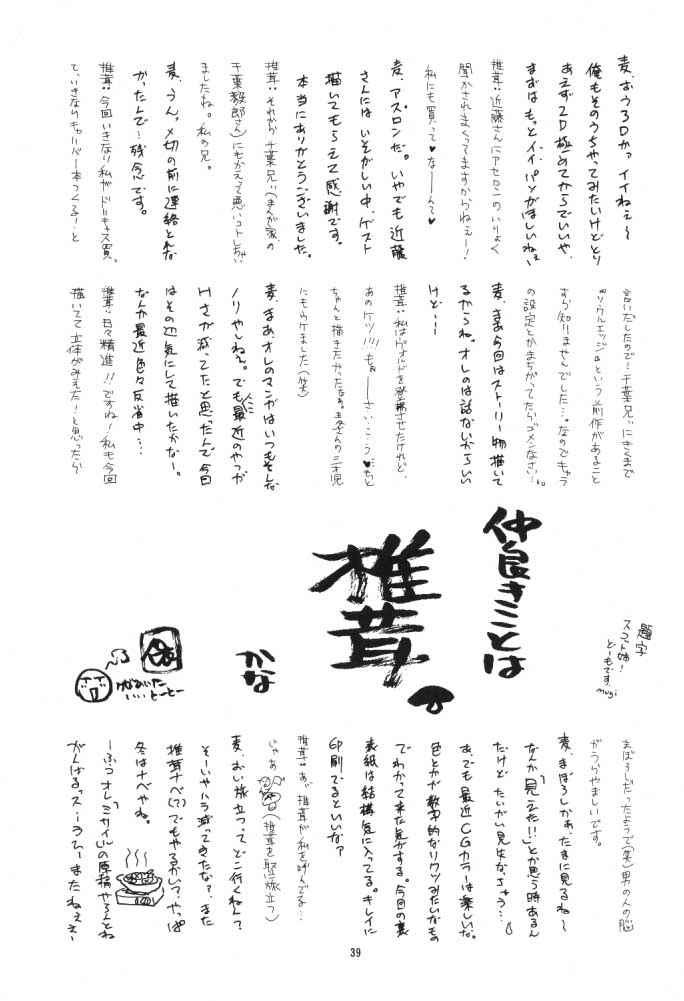 麦、おう3Dかっイイねぇ〜
俺もそのうちやってみたいけどとり
あえず2D極めてからでいいや、
まずはもっとイイパソがほしいねぇ
椎茸:近藤さんにアセロンのいりょく
聞かされまくってますからねぇー!
私にも買って♥なーんて♥
麦、アスロンだ。いやでも近藤
さんにはいそがしい中、ゲスト
描いてもらえて感謝です。
本当にありがとうございました。
椎茸:それから千葉兄ぃ(まんが家の
千葉毅郎さん)にもかえって悪いコトしちゃい
ましたね。私の兄。
麦、うん。〆切の前に連絡とれな
かったんで…残念です。
椎茸:今回いきなり私がドリキャス買っ
て、いきなりキャリバー本つくる!と
言いだしたので…千葉兄ぃにきくまで
『ソウルエッジ』という前作があること
すら知りませんでした…。なのでキャラ
の設定とかまちがってたらゴメンなさい。
麦、まあ今回はストーリー物描いて
るからね。オレのは話ないからいい
けど…
椎茸:私はヴォルドを登場させたけれど、
あのケツ!!!もぉーさいこう♥もと
ちゃんと描きたかったなぁ。
にもウケました(笑)
麦、まあ、オレのマンガはいつもそんな
ノリやしねぇ。でも最近のやつが
Hさが減ってたと思ったんで今回
はその辺気にして描いたかなー。
なんか最近色々反省中…
椎茸:日々精進!!ですね!私も今回
描いてて立体がみえた!と思ったら
まぼろしだったようで(笑)男の人の脳
がうらやましいです。
麦、まぼろしかぁ、たまに見るね〜
なんか「見えた!!」とか思う時あるん
だけどたいがい見失なっちゃう…
あ、でも最近CGカラーは楽しいな。
色とかが数学的なリクツみたいなもの
でわかって来た気がする。今回の裏
表紙は結構気に入ってる。キレイに
印刷でるといいな?
椎茸:あっ椎茸が私を呼んでる…
じゃあ(椎茸を堅に旅立つ)
麦、おい旅立つってどこ行くねん?
そーいやハラ減ってきたな?、また
椎茸ナベ(?)でもやるかい?やっぱ
冬はナベやね。
ーふっオレ「ミサイル」の原稿やろっとね
がんばるっス…うひーまたねぇえ〜
仲良きことは
椎茸。
かな
題字
スコット姉!
どーもです。
mugi
39